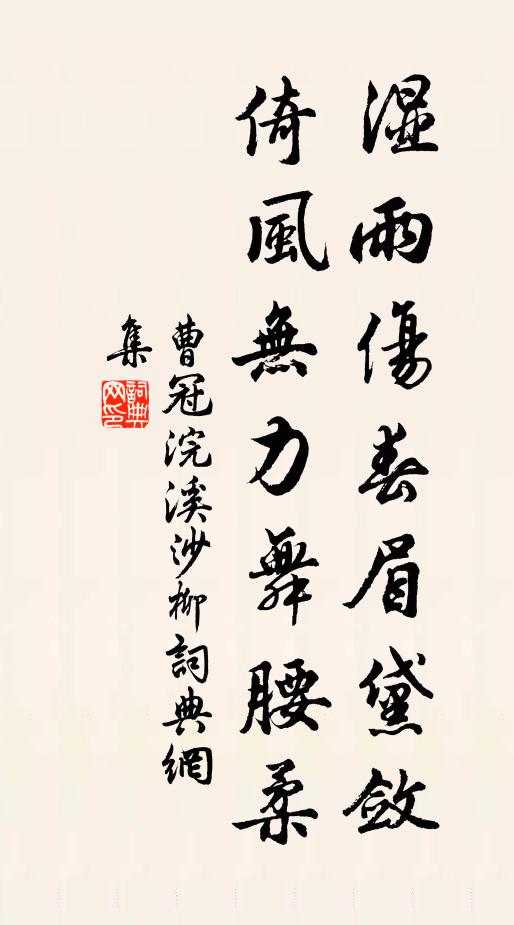 湿雨傷春眉黛斂
倚風無力舞腰柔
曹冠浣溪沙柳詞典網
集
詞典網印